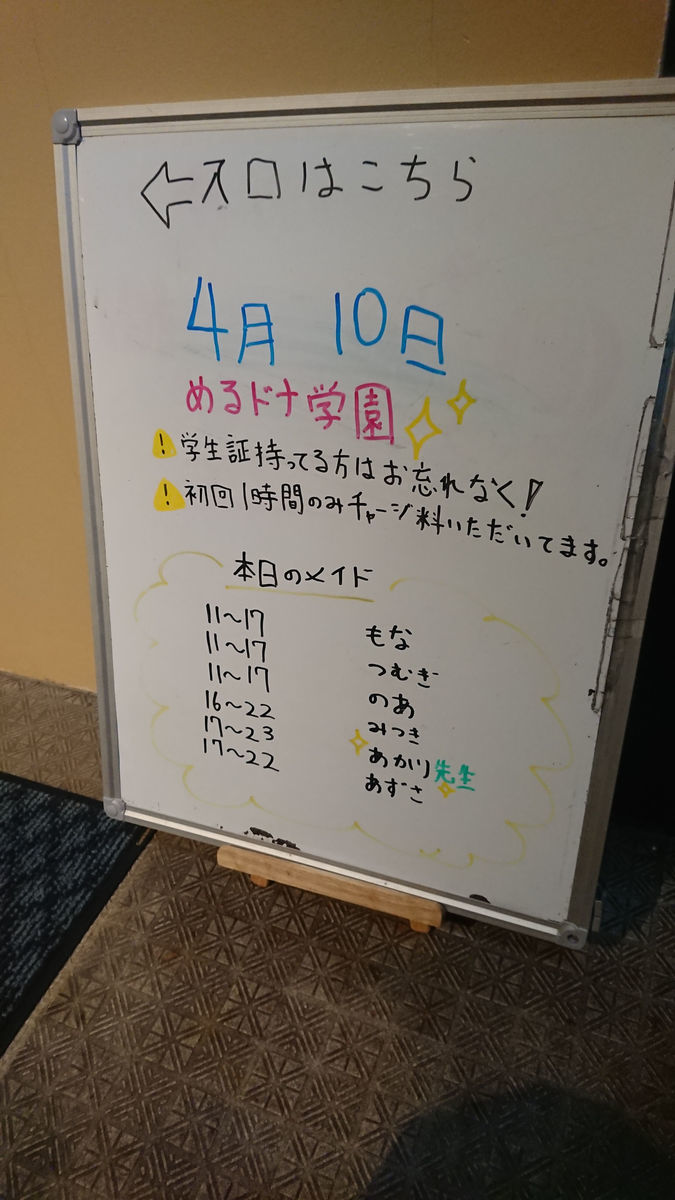 ←スロはこちら
4月 10日
めるドナ学園
学生証持ってる方はお忘れなく!
初回1時間のみチャージ料いただいてます。
本日のメイド
11~17 もな
11~17 つむぎ
11~17 のあ
16~22 みつき
17~23 あかり先生
17~22 あずさ